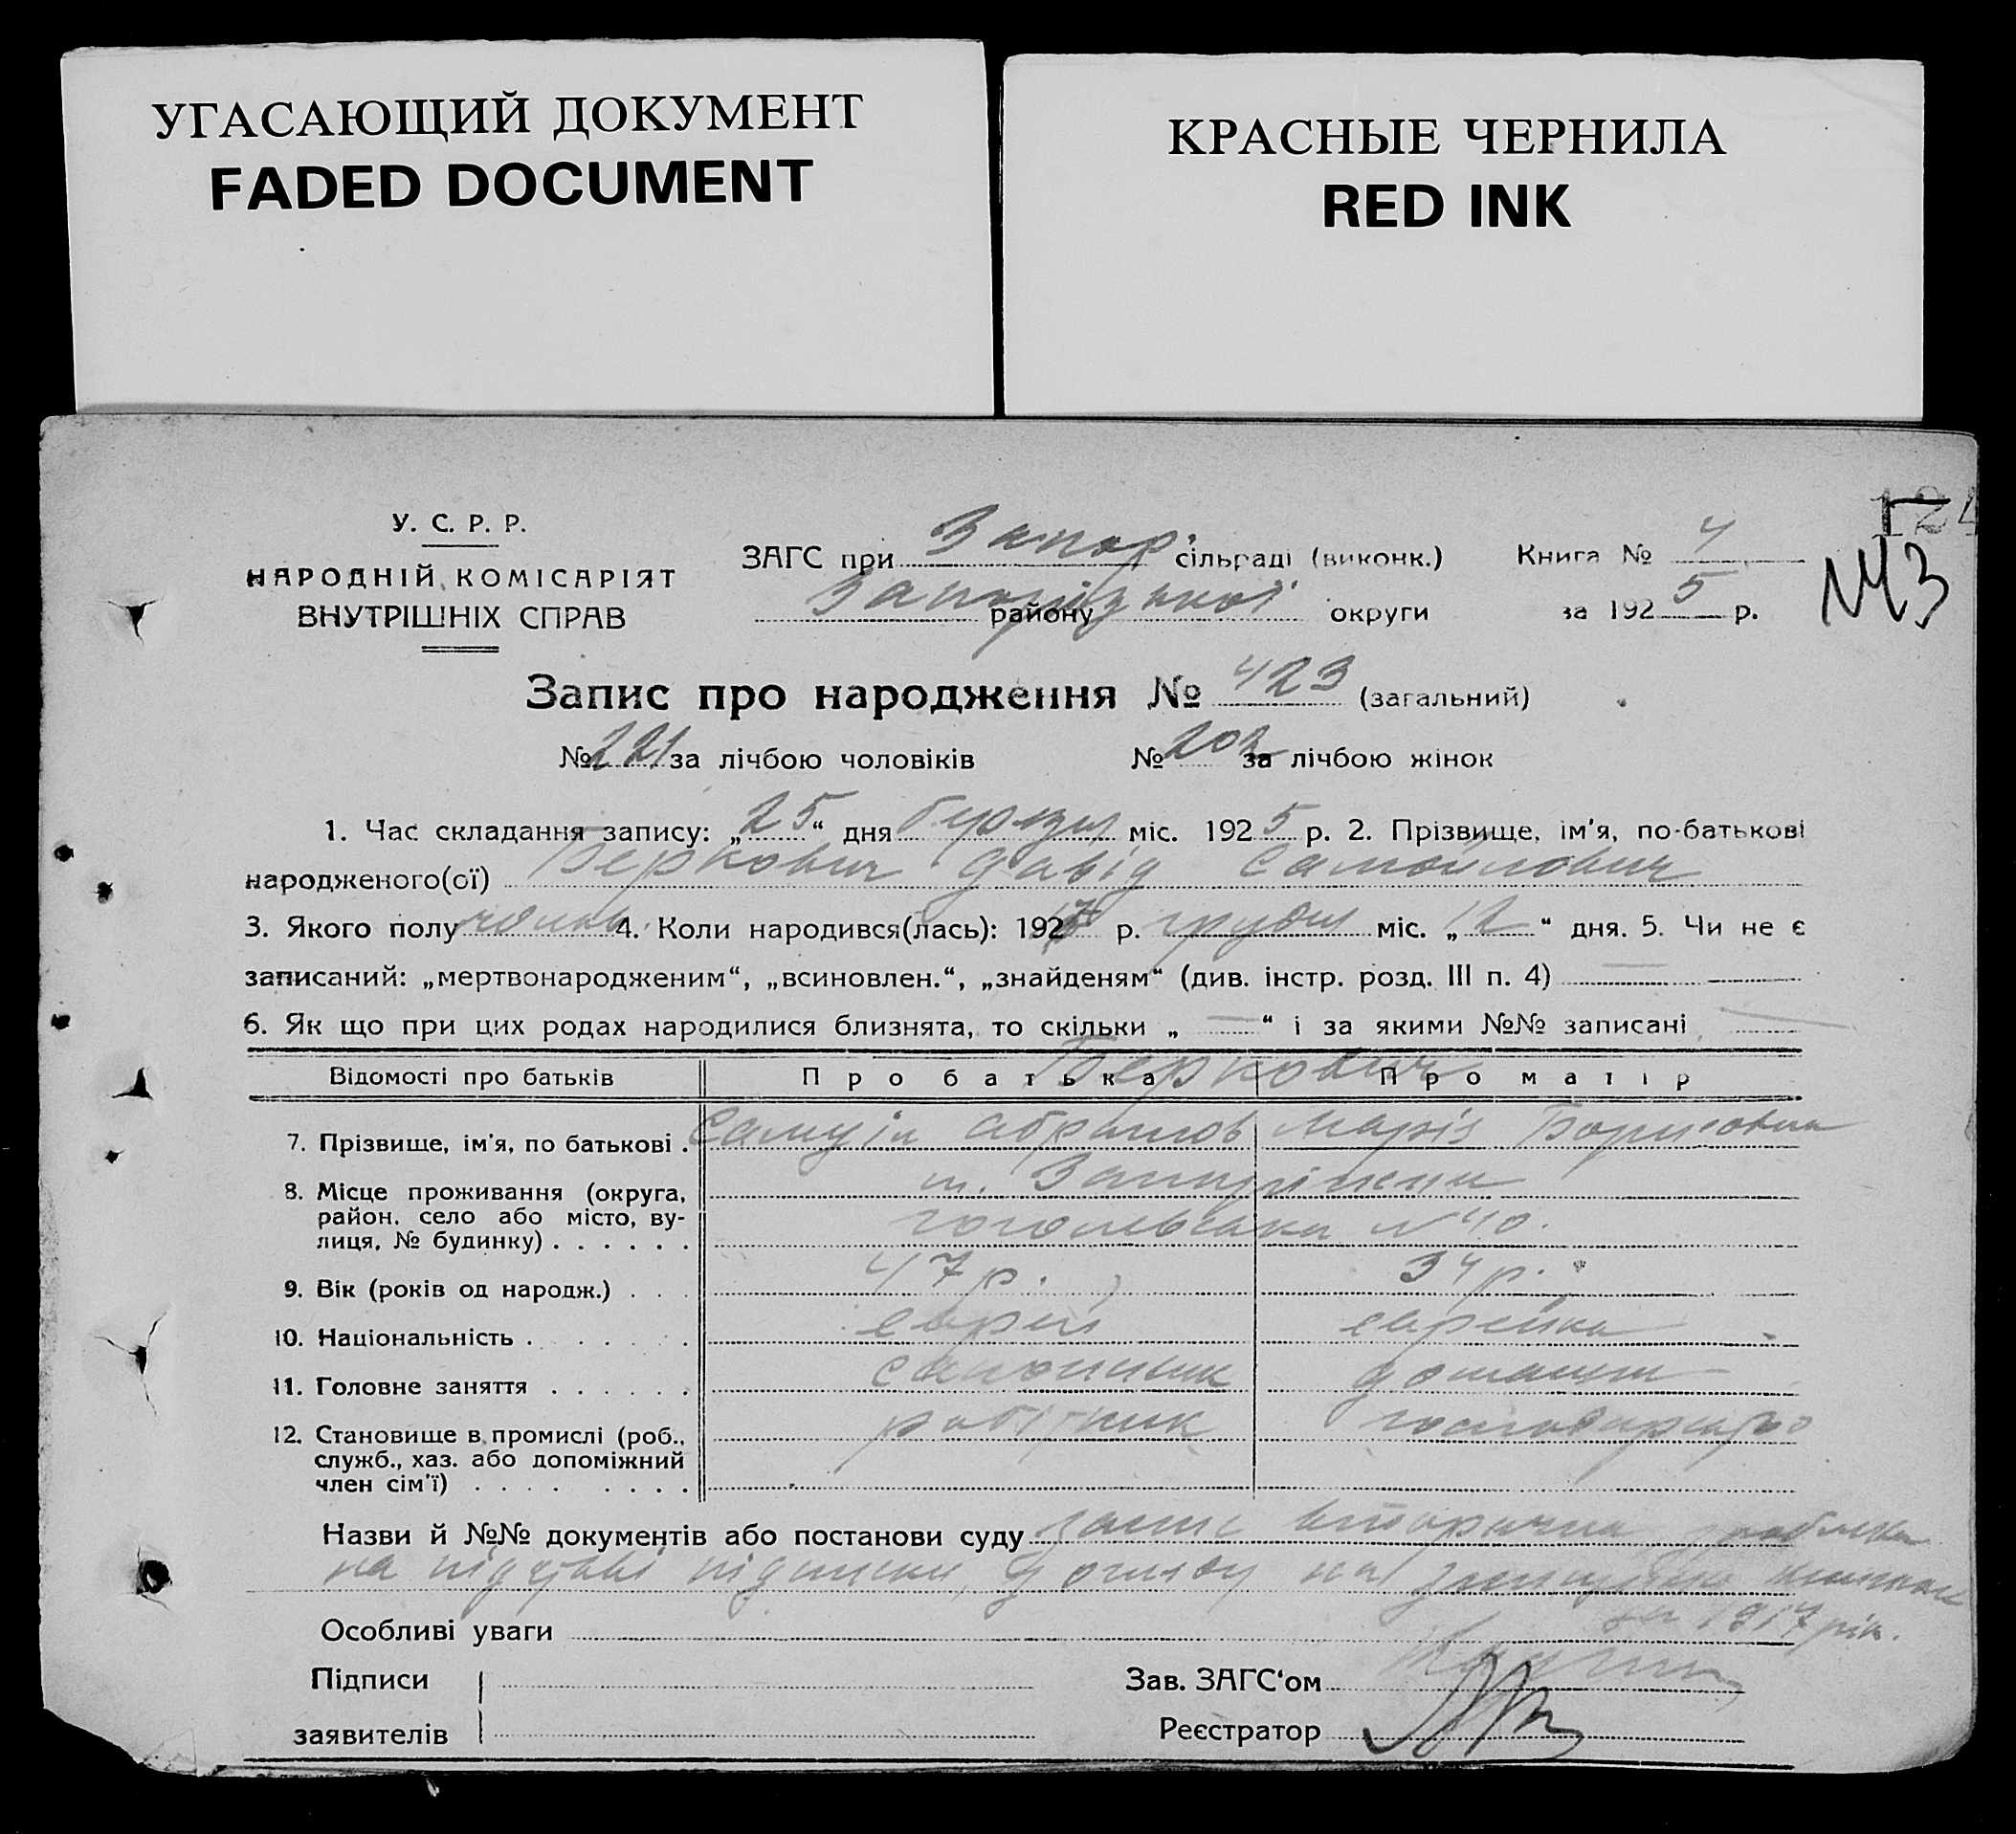 УГАСАЮЩИЙ ДОКУМЕНТ
FADED DOCUMENT
КРАСНЫЕ ЧЕРНИЛА
RED INK
124
У. С. Р. Р.
НАРОДНІЙ КОМІСАРІЯТ
ВНУТРІШНІХ СПРАВ
ЗАГС при Запор. сільраді (виконк.) Книга № 4
району Запорізької округи за 1925 р.
Запис про народження № 423 (загальний)
№ 221 за лічбою чоловіків № 202 за лічбою жінок
1. Час складання запису: „25“ дня міс. 1925 р. 2. Прізвище, ім'я, по-батькові
народженого(ої) Беркович Давід Самойлович
3. Якого полу чолов. 4. Коли народився(лась): 1917 р. грудня міс. „12“ дня. 5. Чи не є
записаний: „мертвонародженим“, „всиновлен.“, „знайденям“ (див. інстр. розд. III п. 4)
6. Як що при цих родах народилися близнята, то скільки „—“ і за якими №№ записані
Беркович
Відомості про батьків Про батька Про матір
7. Прізвище, ім'я, по батькові . Самуїл Абрамов Марія Борисовна
8. Місце проживання (округа,
район, село або місто, ву-
лиця, № будинку) . . . . . . м. Запоріжжя
Гогольська № 40.
9. Вік (років од народж.) . . . 47 р. 34 р.
10. Національність . . . . . . еврей еврейка
11. Головне заняття . . . . . . домашнє
12. Становище в промислі (роб.,
служб., хаз. або допоміжний
член сім'ї) . . . . . . . . робітник господарство
Назви й №№ документів або постанови суду запис вторична зроблена
на підставі підписки, догляду на
за 1917 рік.
Особливі уваги
Підписи
заявителів
Зав. ЗАГС'ом
Реєстратор